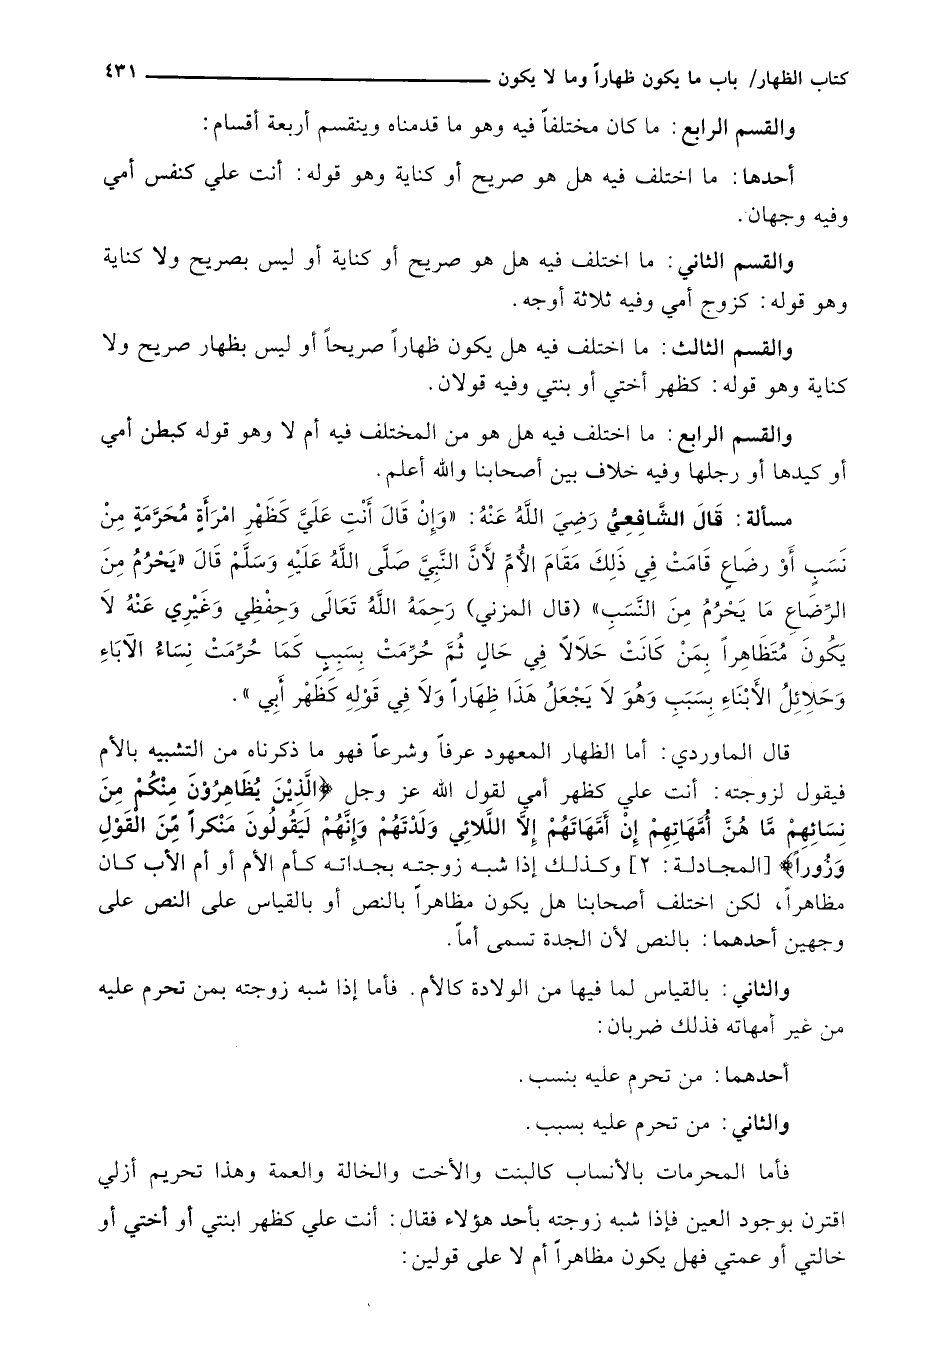 كتاب الظهار/ باب ما يكون ظهاراً وما لا يكون ٤٣١
والقسم الرابع: ما كان مختلفاً فيه وهو ما قدمناه وينقسم أربعة أقسام:
أحدها: ما اختلف فيه هل هو صريح أو كناية وهو قوله: أنت علي كنفس أمي
وفيه وجهان.
والقسم الثاني: ما اختلف فيه هل هو صريح أو كناية أو ليس بصريح ولا كناية
وهو قوله: كزوج أمي وفيه ثلاثة أوجه.
والقسم الثالث: ما اختلف فيه هل يكون ظهاراً صريحاً أو ليس بظهار صريح ولا
كناية وهو قوله: كظهر أختي أو بنتي وفيه قولان.
والقسم الرابع: ما اختلف فيه هل هو من المختلف فيه أم لا وهو قوله كبطن أمي
أو كيدها أو رجلها وفيه خلاف بين أصحابنا والله أعلم.
مسألة: قَالَ الشَّافِعِيُّ رَضِيَ اللَّهُ عَنْهُ: «وَإِنْ قَالَ أَنْتِ عَلَيَّ كَظَهْرِ امْرَأَةٍ مُحَرَّمَةٍ مِنْ
نَسَبٍ أَوْ رِضَاعٍ قَامَتْ فِي ذَلِكَ مَقَامَ الأُمِّ لأَنَّ النَّبِيَّ صَلَّى اللَّهُ عَلَيْهِ وَسَلَّمْ قَالَ «يَحْرُمُ مِنَ
الرِّضَاعِ مَا يَحْرُمُ مِنَ النَّسَبِ» (قال المزني) رَحِمَهُ اللَّهُ تَعَالَى وَحِفْظِي وَغَيْرِي عَنْهُ لاَ
يَكُونَ مُتَظَاهِراً بِمَنْ كَانَتْ حَلاَلاً فِي حَالٍ ثُمَّ حُرِّمَتْ بِسَبَبٍ كَمَا حُرِّمَتْ نِسَاءُ الآبَاءِ
وَحَلاَئِلُ الأَبْنَاءِ بِسَبَبٍ وَهُوَ لاَ يَجْعَلُ هَذَا ظِهَاراً وَلاَ فِي قَوْلِهِ كَظَهْرِ أَبِي».
قال الماوردي: أما الظهار المعهود عرفاً وشرعاً فهو ما ذكرناه من التشبيه بالأم
فيقول لزوجته: أنت علي كظهر أمي لقول الله عز وجل ﴿الَّذِينَ يُظَاهِرُوْنَ مِنْكُمْ مِنَ
نِسَائِهِمْ مَّا هُنَّ أُمَّهَاتِهِمْ إِنْ أُمَّهَاتَهُمْ إِلاَّ اللَّلائِي وَلَدْنَهُمْ وَإِنَّهُمْ لَيَقُولُونَ مَنْكراً مِّنَ الْقَوْلِ
وَزُوراً﴾ [المجادلة: ٢] وكذلك إذا شبه زوجته بجداته كأم الأم أو أم الأب كان
مظاهراً، لكن اختلف أصحابنا هل يكون مظاهراً بالنص أو بالقياس على النص على
وجهين أحدهما: بالنص لأن الجدة تسمى أماً.
والثاني: بالقياس لما فيها من الولادة كالأم. فأما إذا شبه زوجته بمن تحرم عليه
من غير أمهاته فذلك ضربان:
أحدهما: من تحرم عليه بنسب.
والثاني: من تحرم عليه بسبب.
فأما المحرمات بالأنساب كالبنت والأخت والخالة والعمة وهذا تحريم أزلي
اقترن بوجود العين فإذا شبه زوجته بأحد هؤلاء فقال: أنت علي كظهر ابنتي أو أختي أو
خالتي أو عمتي فهل يكون مظاهراً أم لا على قولين: